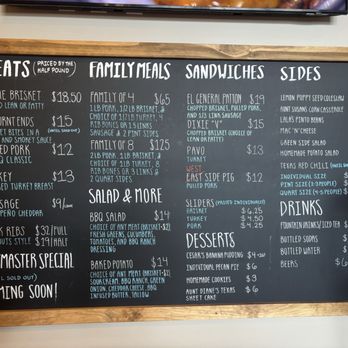 EATS PRICED BY THE HALF POUND
E BRISKET $18.50
D LEAN OR FATTY)
RNT ENDS $15
ET BITES IN A
AND SMOKEY SAUCE
ED PORK $12
Q CLASSIC
KEY $13
KED TURKEY BREAST
SAGE $9/LINK
PEÑO CHEDDAR
K RIBS $32/FULL
OUIS STYLE $19/HALF
MASTER SPECIAL
SOLD OUT)
MING SOON!
FAMILY MEALS
FAMILY OF 4 $65
1 LB PORK, 1/2 LB BRISKET, &
CHOICE OF 1/2 LB TURKEY, 4
RIB BONES OR 3 LINKS
SAUSAGE & 2 PINT SIDES.
FAMILY OF 8 $125
2 LB PORK, 1 LB BRISKET, &
CHOICE OF 1 LB TURKEY, 8
RIB BONES OR 3 LINKS &
2 QUART SIDES.
SALAD & MORE
BBQ SALAD $14
CHOICE OF ANY MEAT (BRISKET+$2)
FRESH GREENS, CUCUMBERS,
TOMATOES, AND BBQ RANCH
DRESSING
BAKED POTATO $14
CHOICE OF ANY MEAT (BRISKET+$2)
SOURCREAM, BBQ RANCH, GREEN
ONION, CHEDDAR CHEESE, BBQ
INFUSED BUTTER, TALLOW
SANDWICHES
EL GENERAL PATTON $19
CHOPPED BRISKET, PULLED PORK,
AND 1/2 LINK SAUSAGE
DIXIE "V" $15
CHOPPED BRISKET (CHOICE OF
LEAN OR FATTY)
PAVO $13
TURKEY
WEST
EAST SIDE PIG $12
PULLED PORK
SLIDERS (PRICED INDIVIDUALLY)
BRISKET $6.25
TURKEY $4.50
PORK $4.25
DESSERTS
CESAR'S BANANA PUDDING $4
INDIVIDUAL PECAN PIE $6
HOMEMADE COOKIES $3
AUNT DIANE'S TEXAS $6
SHEET CAKE
SIDES
LEMON POPPY SEED COLESLAW
AUNT SUSANS CORN CASSEROLE
LALA'S PINTO BEANS
MAC 'N' CHEESE
GREEN SIDE SALAD
HOMEMADE POTATO SALAD
TEXAS RED CHILI
INDIVIDUAL SIZE
PINT SIZE (2-3 PEOPLE)
QUART SIZE (4-5 PEOPLE)
DRINKS
FOUNTAIN DRINKS/ICED TEA
BOTTLED SODAS
BOTTLED WATER
BEERS